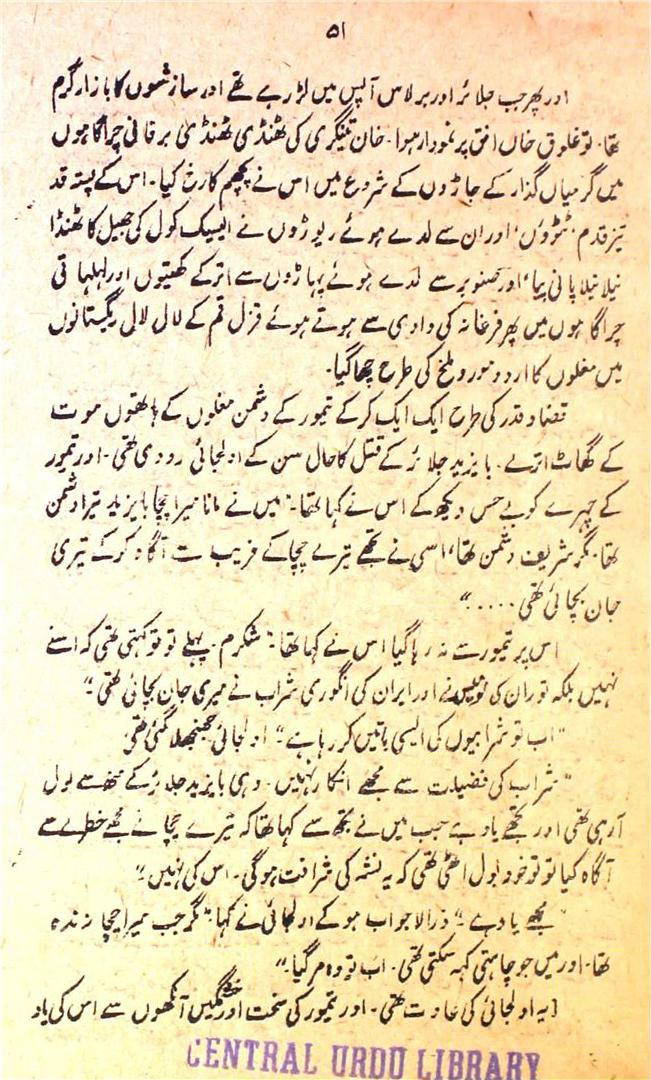 ۵۱
اور پھر جب جلائر اور برلاس آپس میں لڑ رہے تھے اور سازشوں کا بازار گرم
تھا۔ تو تغلوق خاں افق پر نمودار ہوا۔ خان تینگری کی ٹھنڈی ٹھنڈی برفانی چراگاہوں
میں گرمیاں گذار کے جاڑوں کے شروع میں اس نے پچھم کا رخ کیا۔ اس کے پستہ قد
تیز قدم ٹٹوؤں، اور ان سے لدے ہوئے ریوڑوں نے ایسیک کول کی جھیل کا ٹھنڈا
نیلا نیلا پانی پیا، اور صنوبر سے لدے ہوئے پہاڑوں سے اتر کے کھیتوں اور لہلہاتی
چراگاہوں میں پھر فرغانہ کی وادی سے ہوتے ہوئے قزل قم کے لال لال ریگستانوں
میں مغلوں کا اردو مور و ملخ کی طرح چھا گیا۔
قضا و قدر کی طرح ایک ایک کر کے تیمور کے دشمن مغلوں کے ہاتھوں موت
کے گھاٹ اترے۔ بایزید جلائر کے قتل کا حال سن کے اولجائی رو دی تھی۔ اور تیمور
کے چہرے کو بے حس دیکھ کے اس نے کہا تھا۔ "میں نے مانا میرا چچا بایزید تیرا دشمن
تھا۔ مگر شریف دشمن تھا، اسی نے تجھے تیرے چچا کے فریب سے آگاہ کر کے تیری
جان بچائی تھی ....."
اس پر تیمور سے نہ رہا گیا اس نے کہا تھا۔ "شکرم۔ پہلے تو تو کہتی تھی کہ اسنے
نہیں بلکہ توران کی قومیس نے اور ایران کی انگوری شراب نے میری جان بچائی تھی۔"
"اب تو شرابیوں کی ایسی باتیں کر رہا ہے" اولجائی جھنجھلا گئی تھی
"شراب کی فضیلت سے مجھے انکار نہیں۔ وہی بایزید جلائر کے منھ سے بول
آرہی تھی اور تجھے یاد ہے جب میں نے تجھ سے کہا تھا کہ تیرے چچا نے مجھے خطرے سے
آگاہ کیا تو تو خود بول اٹھی تھی کہ یہ نشہ کی شرافت ہو گی۔ اس کی نہیں۔"
"مجھے یاد ہے۔" ذرا لا جواب ہو کے اولجائی نے کہا۔ "مگر جب میرا چچا زندہ
تھا۔ اور میں جو چاہتی کہہ سکتی تھی۔ اب تو وہ مر گیا۔"
(یہ اولجائی کی عادت تھی۔ اور تیمور کی سخت اور خشمگیں آنکھوں سے اس کی یاد
CENTRAL URDU LIBRARY